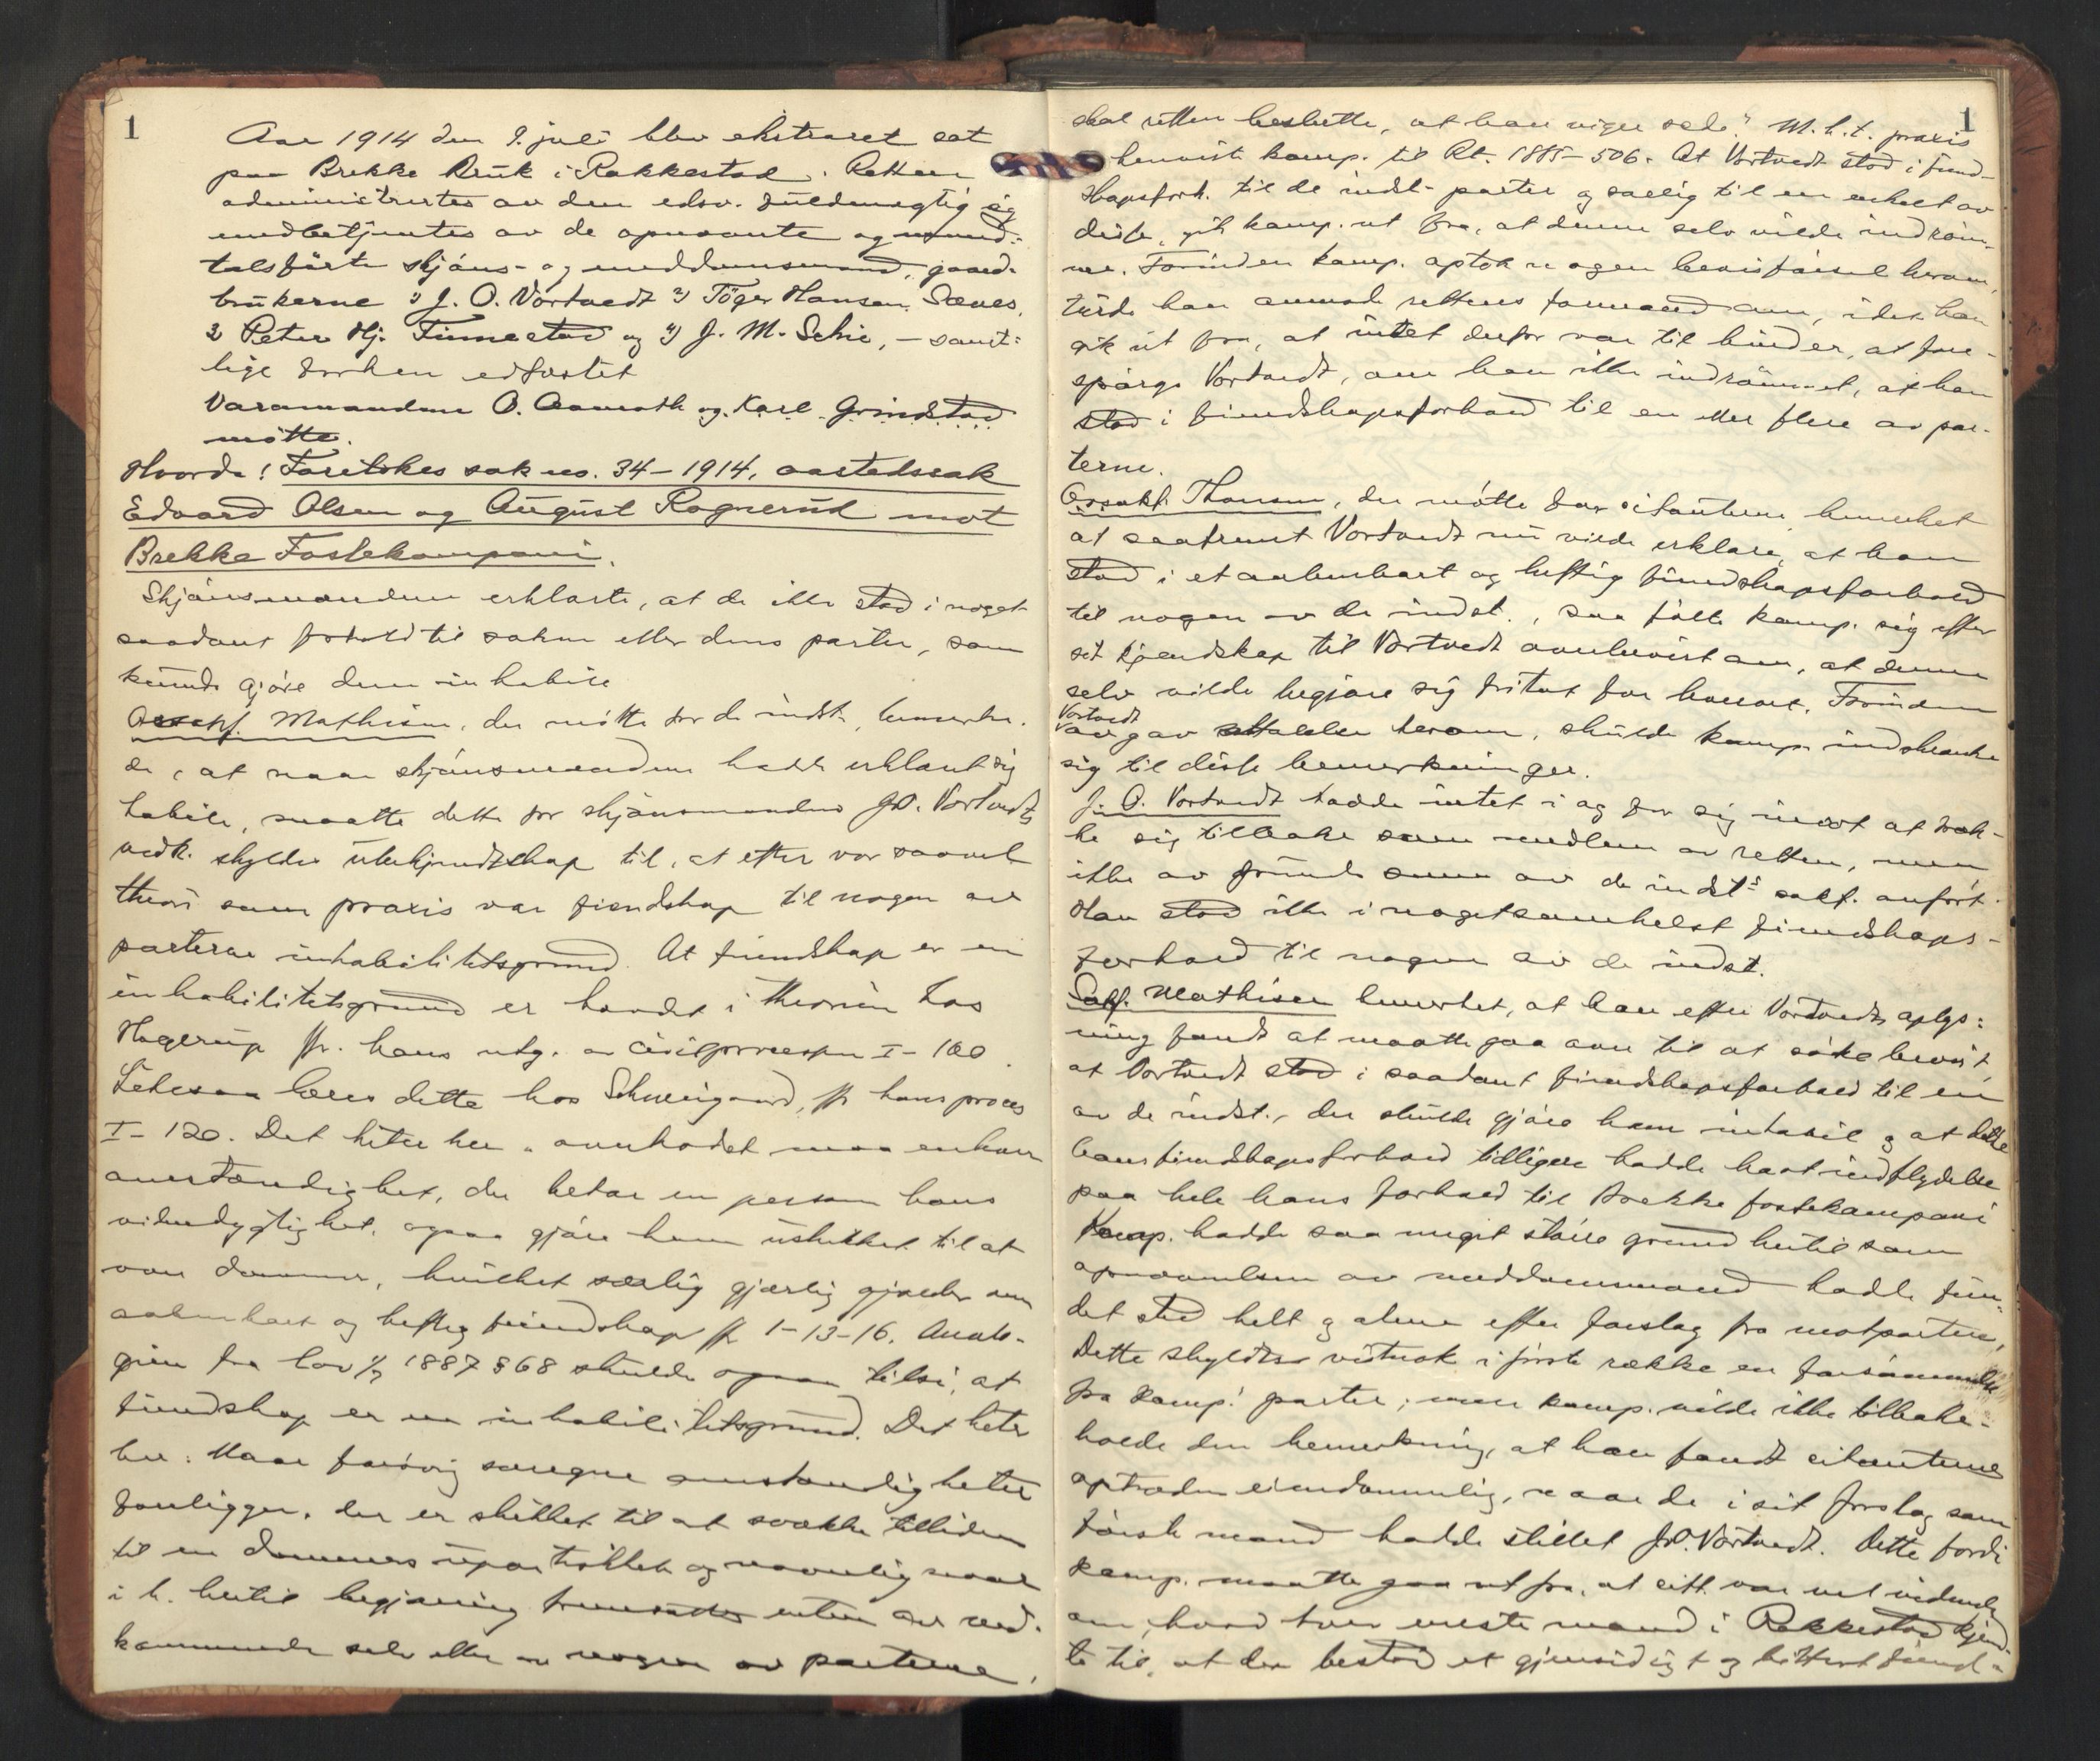 1
Aar 1914 den 9. juli blev ekstraret sat
paa Brekke Bruk i Rakkestad. Retten
administrertes av den edsv. fuldmægtig og
medbetjentes av de opnævnte og mind-
talsförte skjöns- og meddomsmænd, gaard-
brukerne 1) J. O. Vortvedt 2) Töger Hansen Sæves,
3) Peter Hj. Finnestad og 4) J. M. Schie, – samt-
lige forhen edfæstet
Varamændene O. Aamoth og Karl Grindstad
mötte.
Hvorda: Foretokes sak no. 34 – 1914, aastedssak
Edvard Olsen og August Rognerud mot
Brekke Fossekompani.
Skjönsmændene erklærte, at de ikke stod i noget
saadant forhold til saken eller dens parter, som
kunde gjöre dem inhabile
Orsakf. Mathisen, der mötte for de indst., bemerke-
de, at naar skjönsmændene hadde erklært sig
habile, maatte dette for skjönsmanden J.O. Vortvedts
vedk. skyldes ukjendskap til, at efter vor saavel
theori som praxis var fiendskap til nogen av
parterne inhabilitetsgrund. At fiendskap er en
inhabilitetsgrund er hævdet i theorien hos
Hagerup jfr. hans utg. av civilprocessen I – 100.
Likesaa læres dette hos Schweigaard, jfr hans proces
I – 120. Det heter her „overhodet maa enhver
omstændighet, der betar en person hans
vidnedygtighet, ogsaa gjöre ham uskikket til at
være dommer, hvilket særlig gjælder om
aabenbart og heftig fiendskap jfr 1-13-16. Analo-
gien fra lov 1/7 1887 § 68 skulde ogsaa tilsi, at
fiendskap er en inhabilitetsgrund. Det heter
her: Naar forövrig særegne omstændigheter
foreligger, der er skikket til at svække tilliden
til en dommers upartiskhet og navnlig naar
i h. hertil begjæring fremsættes enten av ved-
kommende selv eller av nogen av parterne,
1
skal retten beslutte, at han viger sæde." M.h.t. praxis
henviste komp. til Rt. 1885 – 506. At Vortvedt stod i fiend-
skapsforh. til de indst. parter og særlig til en enkelt av
disse, gik komp. ut fra, at denne selv vilde indröm-
me. Forinden komp. optok nogen bevisförsel herom,
turde han anmode rettens formand om, idet han
gik ut fra, at intet derfor var til hinder, at fore-
spörge Vortvedt, om han ikke indrömmet, at han
stod i fiendskapsforhold til en eller flere av par-
terne.
Orsakf. Thorsen, der mötte for citanterne, bemerket
at saafremt Vortvedt nu vilde erklære, at han
stod i et aabenbart og heftig fiendskapsforhold
til nogen av de indst., saa fölte komp. sig efter
sit kjendskap til Vortvedt overbevist om, at denne
selv vilde begjære sig fritat for hvervet. Forinden
Vortvedt
avgav uttalelse herom, skulde komp. indskrænke
sig til disse bemerkninger.
J. O. Vortvedt hadde intet i og for sig imot at træk-
ke sig tilbake som medlem av retten, men
ikke av grunde som av de indst.s sakf. anfört.
Han stod ikke i nogetsomhelst fiendskaps-
forhold til nogen av de indst.
Sakf. Mathisen bemerket, at han efter Vortvedts oplys-
ning fandt at maatte gaa over til at söke bevist,
at Vortvedt stod i saadant fiendskapsforhold til en
av de indst., der skulde gjöre ham inhabil og at dette
hans fiendskapsforhold tidligere hadde havt indflydelse
paa hele hans forhold til Brekke fossekompani
Komp. hadde saa meget större grund hertil som
opnævnelsen av meddomsmænd hadde fun-
det sted helt og alene efter forslag fra motparten,
Dette skyldtes vistnok i förste række en forsömmelse
fra komp.' parter, men komp. vilde ikke tilbake-
holde den bemerkning, at han fandt citanternes
optræden eiendommelig, naar de i sit forslag som
förste mand hadde stillet J.O. Vortvedt. Dette fordi
komp. maatte gaa ut fra, at citt. var vel vidende
om, hvad hver eneste mand i Rakkestad kjend-
te til, at der bestod et gjensidigt og bittert fiend-